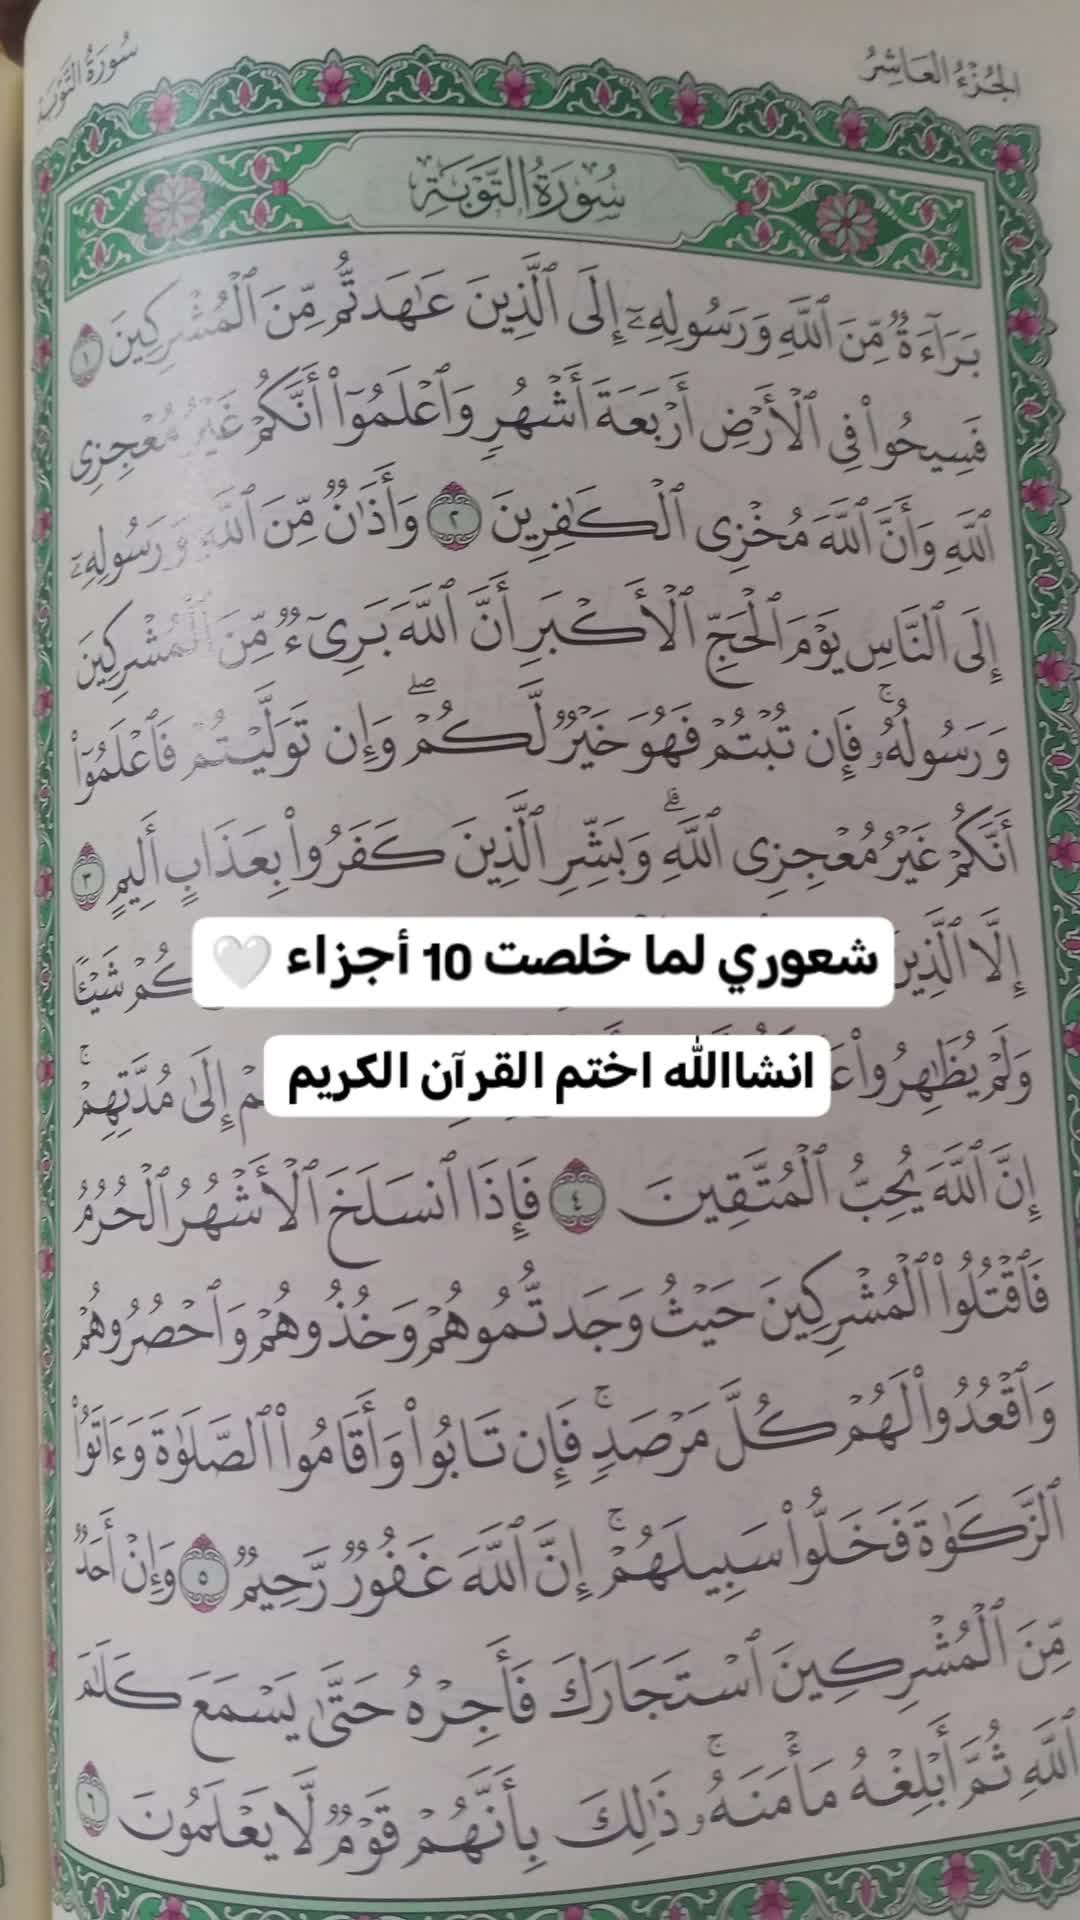 الجُزْءُ العَاشِرُ
سُورَةُ التَّوْبَة
سُورَةُ التَّوْبَةِ
بَرَآءَةٌ مِّنَ ٱللَّهِ وَرَسُولِهِۦٓ إِلَى ٱلَّذِينَ عَٰهَدتُّم مِّنَ ٱلْمُشْرِكِينَ ١
فَسِيحُوا۟ فِى ٱلْأَرْضِ أَرْبَعَةَ أَشْهُرٍ وَٱعْلَمُوٓا۟ أَنَّكُمْ غَيْرُ مُعْجِزِى
ٱللَّهِ وَأَنَّ ٱللَّهَ مُخْزِى ٱلْكَٰفِرِينَ ٢ وَأَذَٰنٌ مِّنَ ٱللَّهِ وَرَسُولِهِۦٓ
إِلَى ٱلنَّاسِ يَوْمَ ٱلْحَجِّ ٱلْأَكْبَرِ أَنَّ ٱللَّهَ بَرِىٓءٌ مِّنَ ٱلْمُشْرِكِينَ
وَرَسُولُهُۥ ۚ فَإِن تُبْتُمْ فَهُوَ خَيْرٌ لَّكُمْ ۖ وَإِن تَوَلَّيْتُمْ فَٱعْلَمُوٓا۟
أَنَّكُمْ غَيْرُ مُعْجِزِى ٱللَّهِ ۗ وَبَشِّرِ ٱلَّذِينَ كَفَرُوا۟ بِعَذَابٍ أَلِيمٍ ٣
إِلَّا ٱلَّذِينَ كُمْ شَيْـًٔا
شعوري لما خلصت 10 أجزاء 🤍
وَلَمْ يُظَٰهِرُوا۟ إِلَىٰ مُدَّتِهِمْ ۚ
انشاالله اختم القرآن الكريم
إِنَّ ٱللَّهَ يُحِبُّ ٱلْمُتَّقِينَ ٤ فَإِذَا ٱنسَلَخَ ٱلْأَشْهُرُ ٱلْحُرُمُ
فَٱقْتُلُوا۟ ٱلْمُشْرِكِينَ حَيْثُ وَجَدتُّمُوهُمْ وَخُذُوهُمْ وَٱحْصُرُوهُمْ
وَٱقْعُدُوا۟ لَهُمْ كُلَّ مَرْصَدٍ ۚ فَإِن تَابُوا۟ وَأَقَامُوا۟ ٱلصَّلَوٰةَ وَءَاتَوُا۟
ٱلزَّكَوٰةَ فَخَلُّوا۟ سَبِيلَهُمْ ۚ إِنَّ ٱللَّهَ غَفُورٌ رَّحِيمٌ ٥ وَإِنْ أَحَدٌ
مِّنَ ٱلْمُشْرِكِينَ ٱسْتَجَارَكَ فَأَجِرْهُ حَتَّىٰ يَسْمَعَ كَلَٰمَ
ٱللَّهِ ثُمَّ أَبْلِغْهُ مَأْمَنَهُۥ ۚ ذَٰلِكَ بِأَنَّهُمْ قَوْمٌ لَّا يَعْلَمُونَ ٦